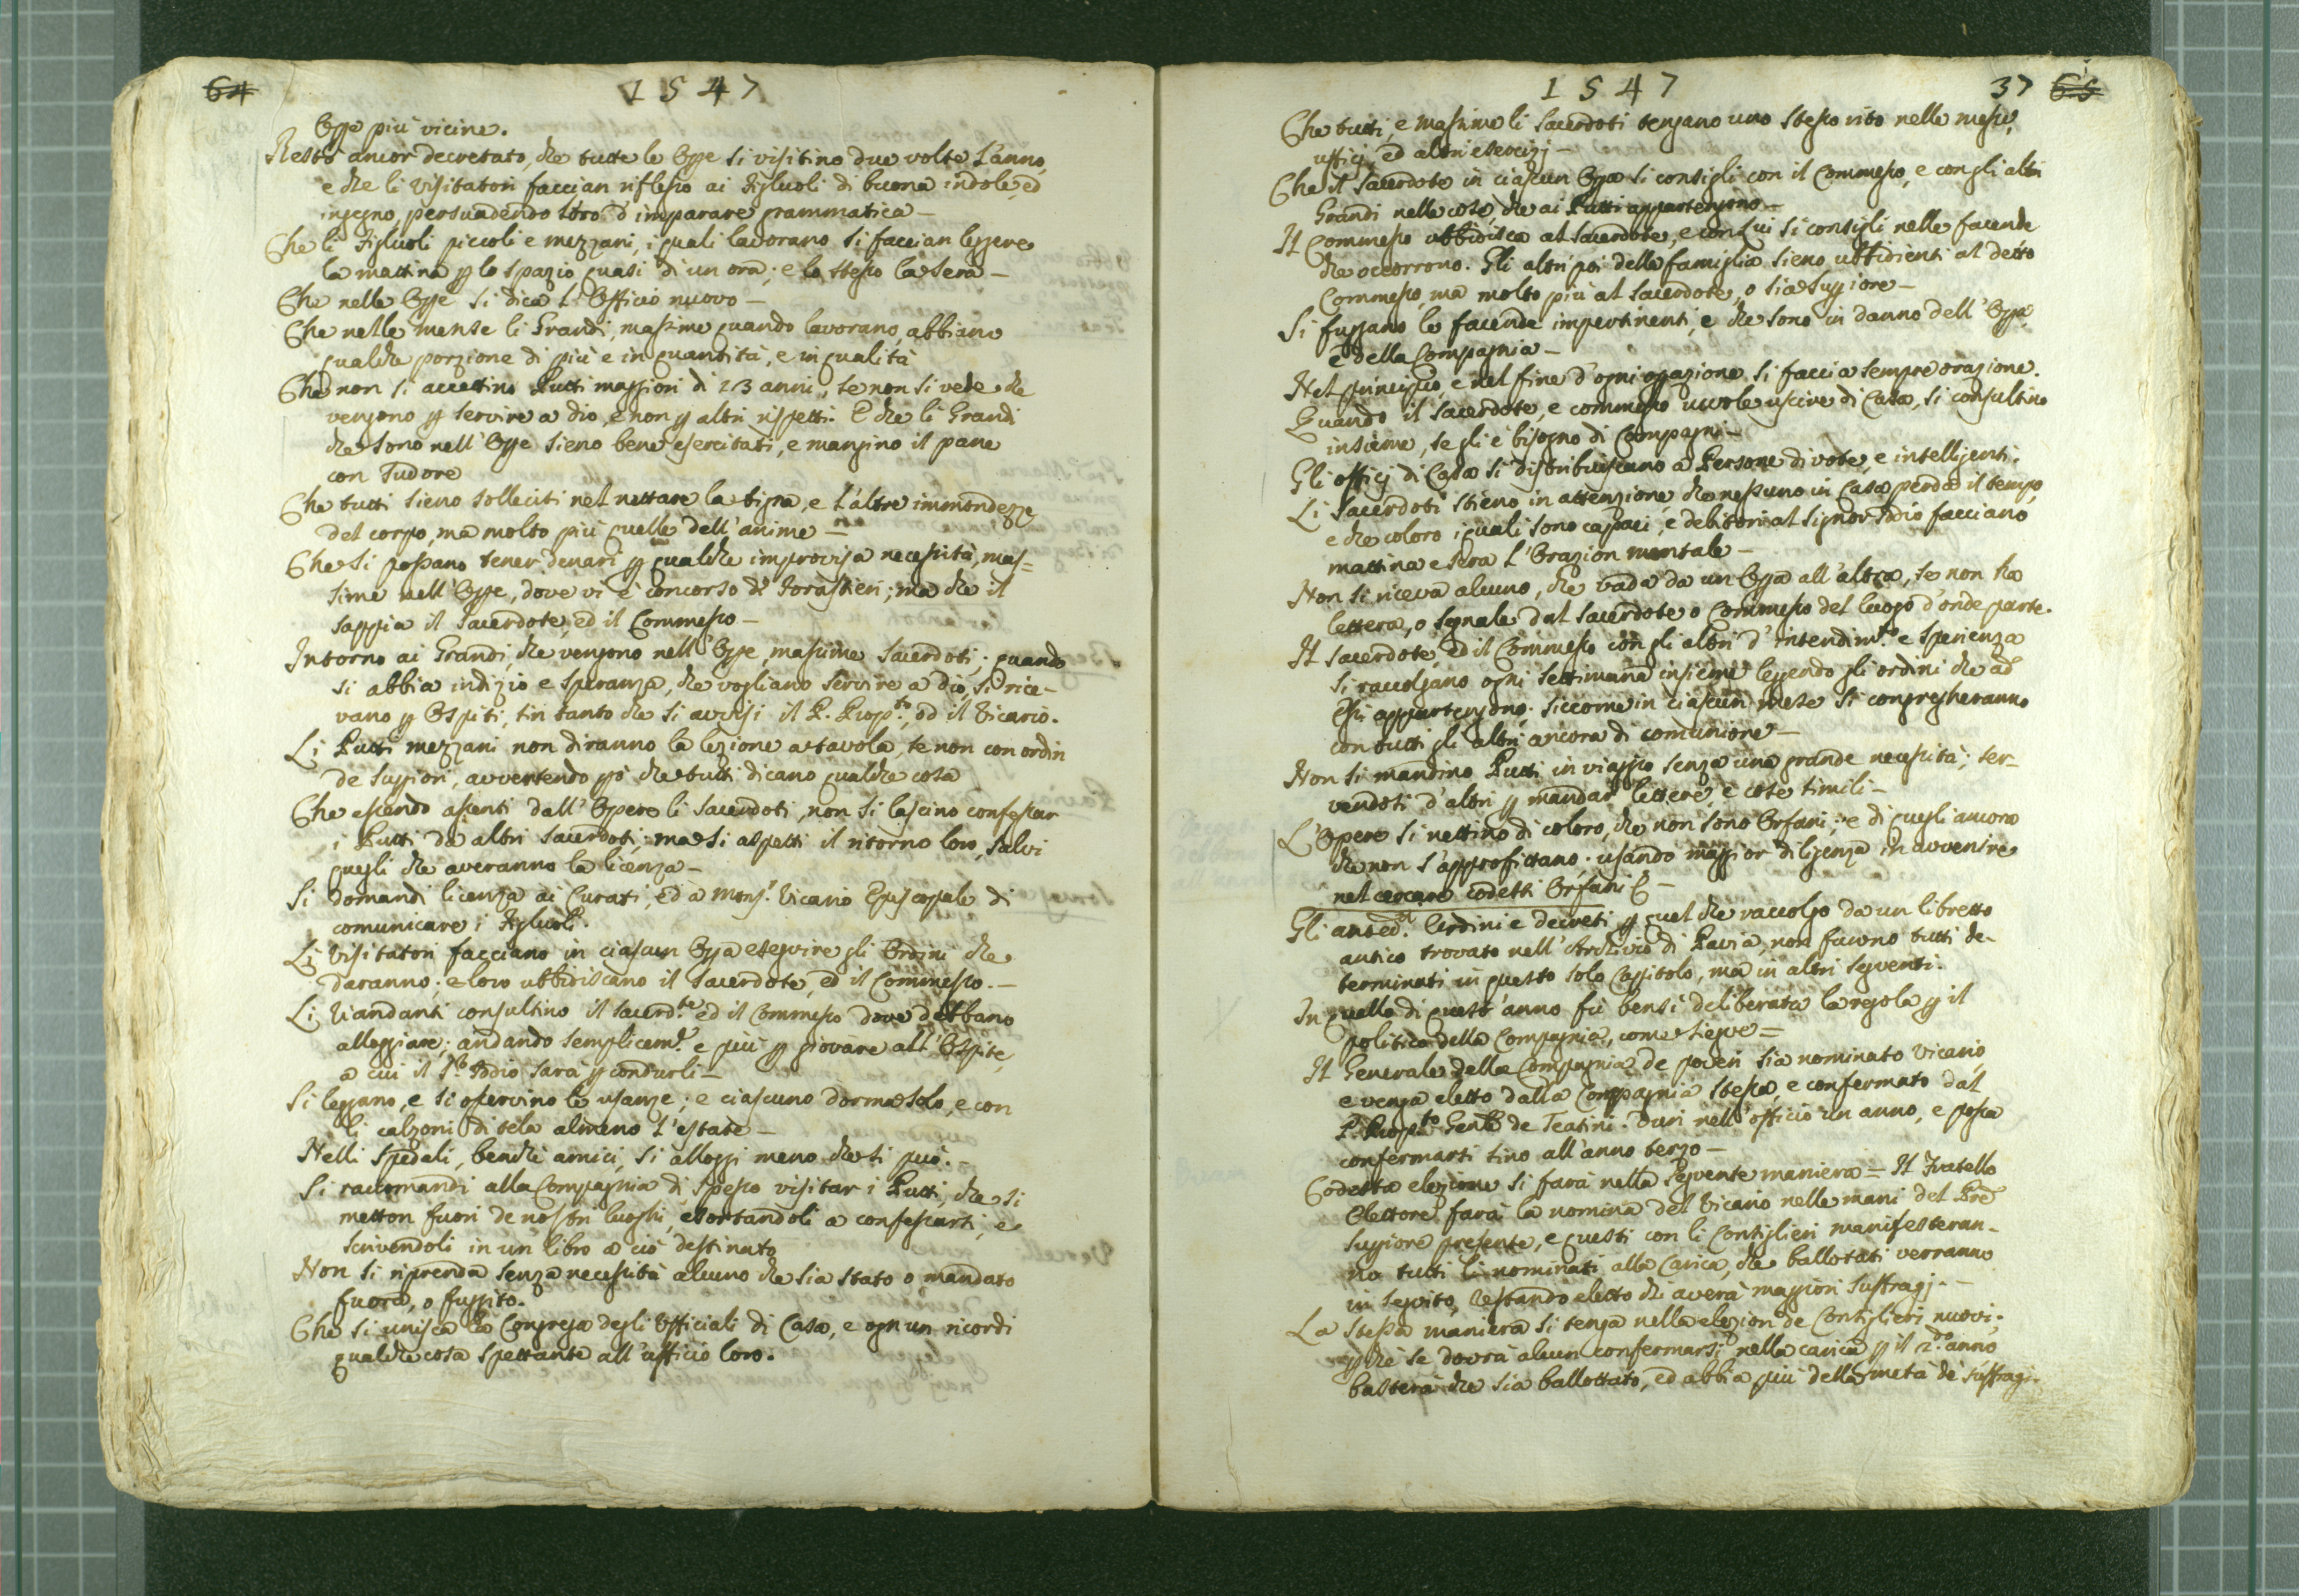 64
1547
Oppe più vicine.
Restò ancor decretato, che tutte le Oppe si visitino due volte l'anno,
e che li Visitatori faccian riflesso ai figliuoli di buona indole, ed
ingegno, persuadendo loro d'imparare grammatica —
Che li figliuoli piccoli e mezzani, i quali lavorano si faccian leggere
la mattina p lo spazio quasi di un ora; e lo stesso la sera —
Che nelle Oppe si dica l'Officio nuovo —
Che nelle mense li Grandi, massime quando lavorano, abbiano
qualche porzione di più e in quantità, e in qualità
Che non si accettino Putti maggiori di 13 anni, se non si vede che
vengono p servire a dio, e non p altri rispetti. E che li Grandi
che sono nell'Oppe sieno bene esercitati, e mangino il pane
con sudore
Che tutti sieno solleciti nel nettare la tigna, e l'altre immondezze
del corpo, ma molto più quelle dell'anime —
Che si possano tener denari p qualche improvisa necessità, mas=
sime nell'Oppe, dove vi è concorso di forastieri; ma che il
sappia il Sacerdote, ed il Commesso —
Intorno ai Grandi, che vengono nell'Oppe, massime Sacerdoti; quando
si abbia indizio e speranza, che vogliano servire a dio, si rice-
vano p Ospiti, sin tanto che si avvisi il P. Prop.to, od il Vicario.
Li Putti mezzani non diranno la lezione a tavola, se non con ordin
de Suppiori, avvertendo pò che tutti dicano qualche cosa
Che essendo assenti dall'Opere li Sacerdoti, non si lascino confessar
i Putti da altri Sacerdoti; ma si aspetti il ritorno loro, salvi
quegli che averanno la licenza —
Si domandi licenza ai Curati, ed a Mons.r Vicario Episcopale di
comunicare i figliuoli.
Li Visitatori facciano in ciascun Oppa eseguire gli Ordini che
daranno; e loro ubbidiscano il Sacerdote, ed il Commesso. —
Li Viandanti consultino il Sacerd.te ed il Commesso dove debbano
alloggiare; andando semplicem.e e più p giovare all'Ospite,
a cui il S.r Iddio sarà p condurli —
Si leggano, e si osservino le usanze; e ciascuno dorma solo, e con
li calzoni di tela almeno l'estate —
Nelli Spedali, benchè amici, si alloggi meno che si può. —
Si raccomandi alla Compagnia di spesso visitar i Putti, che si
metton fuori de nostri luoghi, esortandoli a confessarsi, e
scrivendoli in un libro a ciò destinato
Non si riprenda senza necessità alcuno che sia stato o mandato
fuora, o fuggito.
Che si unisca la Congrega degli Officiali di Casa, e ogn un ricordi
qualche cosa spettante all'ufficio loro.
1547
37 65
Che tutti, e massime li Sacerdoti tengano uno stesso rito nelle messe,
ufficj, ed altri esercizj —
Che il Sacerdote in ciascun Oppa si consigli con il Commesso, e con gli altri
Grandi nelle cose, che ai Putti appartengono —
Il Commesso ubbidisca al Sacerdote, e con Lui si consigli nelle facende
che occorrono. Gli altri poi della famiglia sieno ubbidienti al detto
Commesso, ma molto più al Sacerdote, o sia Suppiore —
Si fuggano le facende impertinenti, e che sono in danno dell'Oppa,
e della Compagnia —
Nel principio, e nel fine d'ogni oppazione si faccia sempre orazione.
Quando il Sacerdote, e commesso vuole uscire di Casa, si consultino
insieme, se gli è bisogno di Compagni —
Gli officj di Casa si distribuiscano a Persone divote, e intelligenti.
Li Sacerdoti stieno in attenzione, che nessuno in Casa perda il tempo,
e che coloro i quali sono capaci, e debitori al Signor Iddio facciano
mattina e sera l'Orazion mentale —
Non si riceva alcuno, che vada da un Oppa all'altra, se non ha
lettera, o segnale dal Sacerdote o Commesso del luogo d'onde parte.
Il Sacerdote, ed il Commesso con gli altri d'intendim.to e sperienza
si raccolgano ogni settimana insieme leggendo gli ordini che ad
essi appartengono; siccome in ciascun mese si congregheranno
con tutti gli altri ancora di comunione —
Non si mandino Putti in viaggio senza una grande necessità; ser-
vendosi d'altri p mandar lettere, e cose simili —
L'Opere si nettino di coloro, che non sono Orfani; e di quegli ancora
che non s'approfittano; usando maggior diligenza in avvenire
nel cercare codetti Orfani &c —
Gli anted.ti Ordini e decreti p quel che raccolgo da un libretto
antico trovato nell'Archivio di Pavia, non furono tutti de-
terminati in questo solo Capitolo, ma in altri seguenti.
In quello di quest'anno fù bensì deliberata la regola p il
politica della Compagnia, come siegue =
Il Generale della Compagnia de poveri sia nominato Vicario
e venga eletto dalla Compagnia stessa, e confermato dal
P. Prop.to Gen.le de Teatini. Duri nell'officio un anno, e possa
confermarsi sino all'anno terzo —
Codesta elezione si farà nella seguente maniera = Il Fratello
elettore farà la nomina del Vicario nelle mani del Pre
Suppiore presente, e questi con li Consiglieri manifesteran-
no tutti li nominati alla Carica, che ballottati verranno
in seguito, restando eletto chi averà maggiori suffragj. —
La stessa maniera si tenga nella elezion de Consiglieri nuovi;
p che se dovrà alcun confermarsi nella carica p il 2.do anno
basterà che sia ballottato, ed abbia più della metà de suffragj.